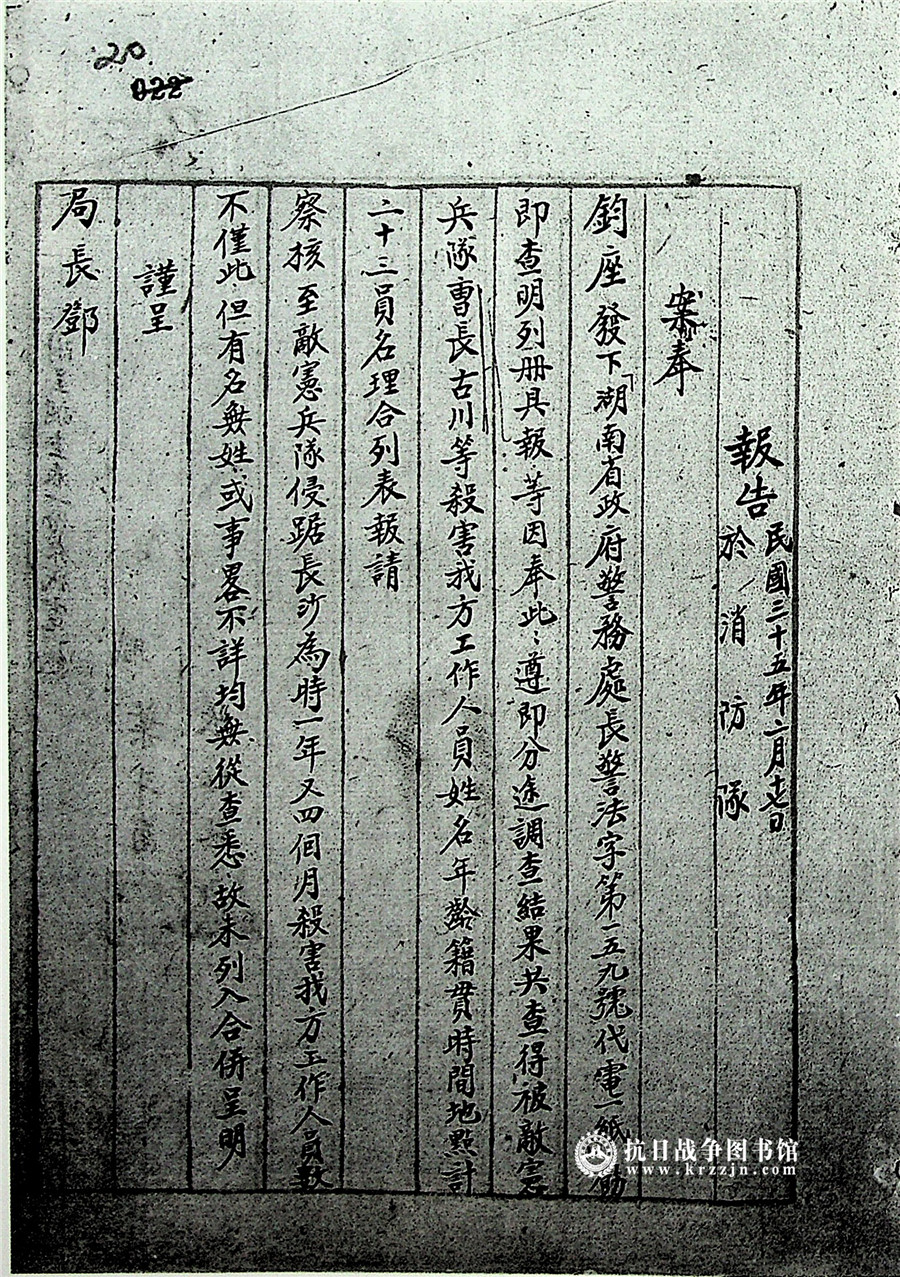 20
022
報告
民國三十五年二月十七日
於消防隊
案奉
鈞座發下「湖南省政府警務處長警法字第一五九號代電一紙飭
即查明列册具報等因奉此遵即分途調查結果共查得被敵憲
兵隊曹長古川等殺害我方工作人員姓名年齡籍貫時間地點計
二十三員名理合列表報請
察核至敵憲兵隊侵踞長沙為時一年又四個月殺害我方工作人員數
不僅此但有名無姓或事畧不詳均無從查悉故未列入合併呈明
謹呈
局長鄧
抗日战争图书馆
www.krzzjn.com